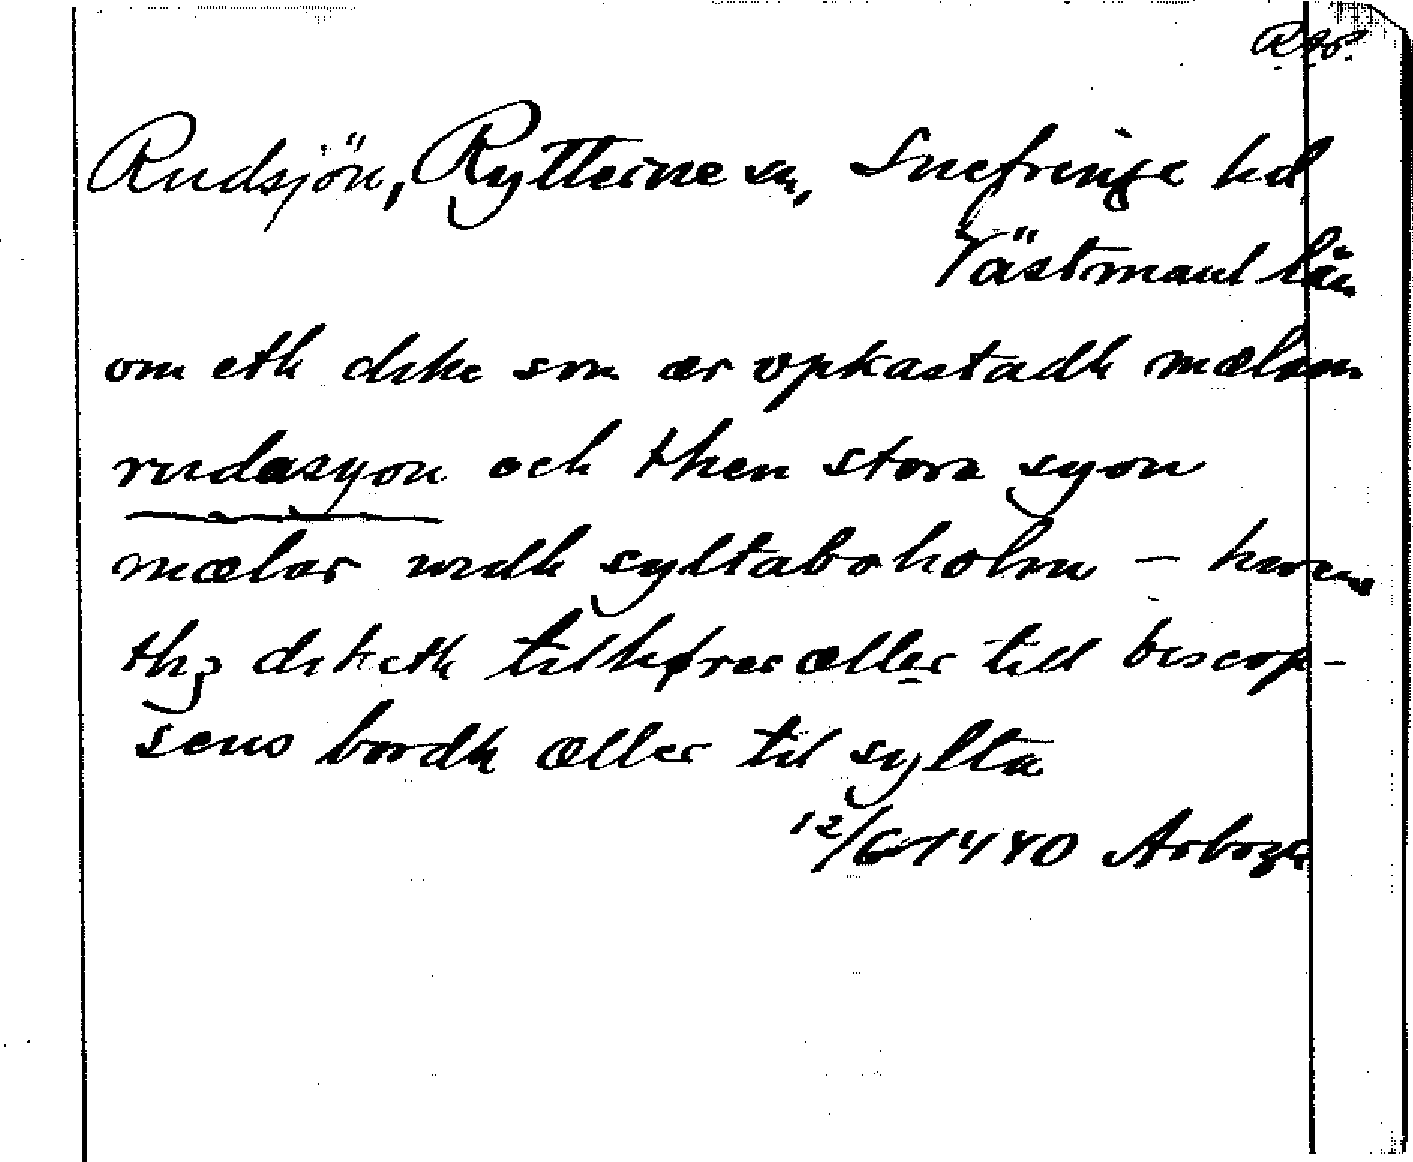 R.A.P.
Rudsjön, Rytterne sn, Snefringe hd
Västmanl län
om eth dike som ær vpkastadh mælom
rudasyon och then stora syon
mælar widh syltaboholm – hwem
thz diketh tilhører æller till biscop-
sens bordh æller til sylta
12/6 1440 Arboga